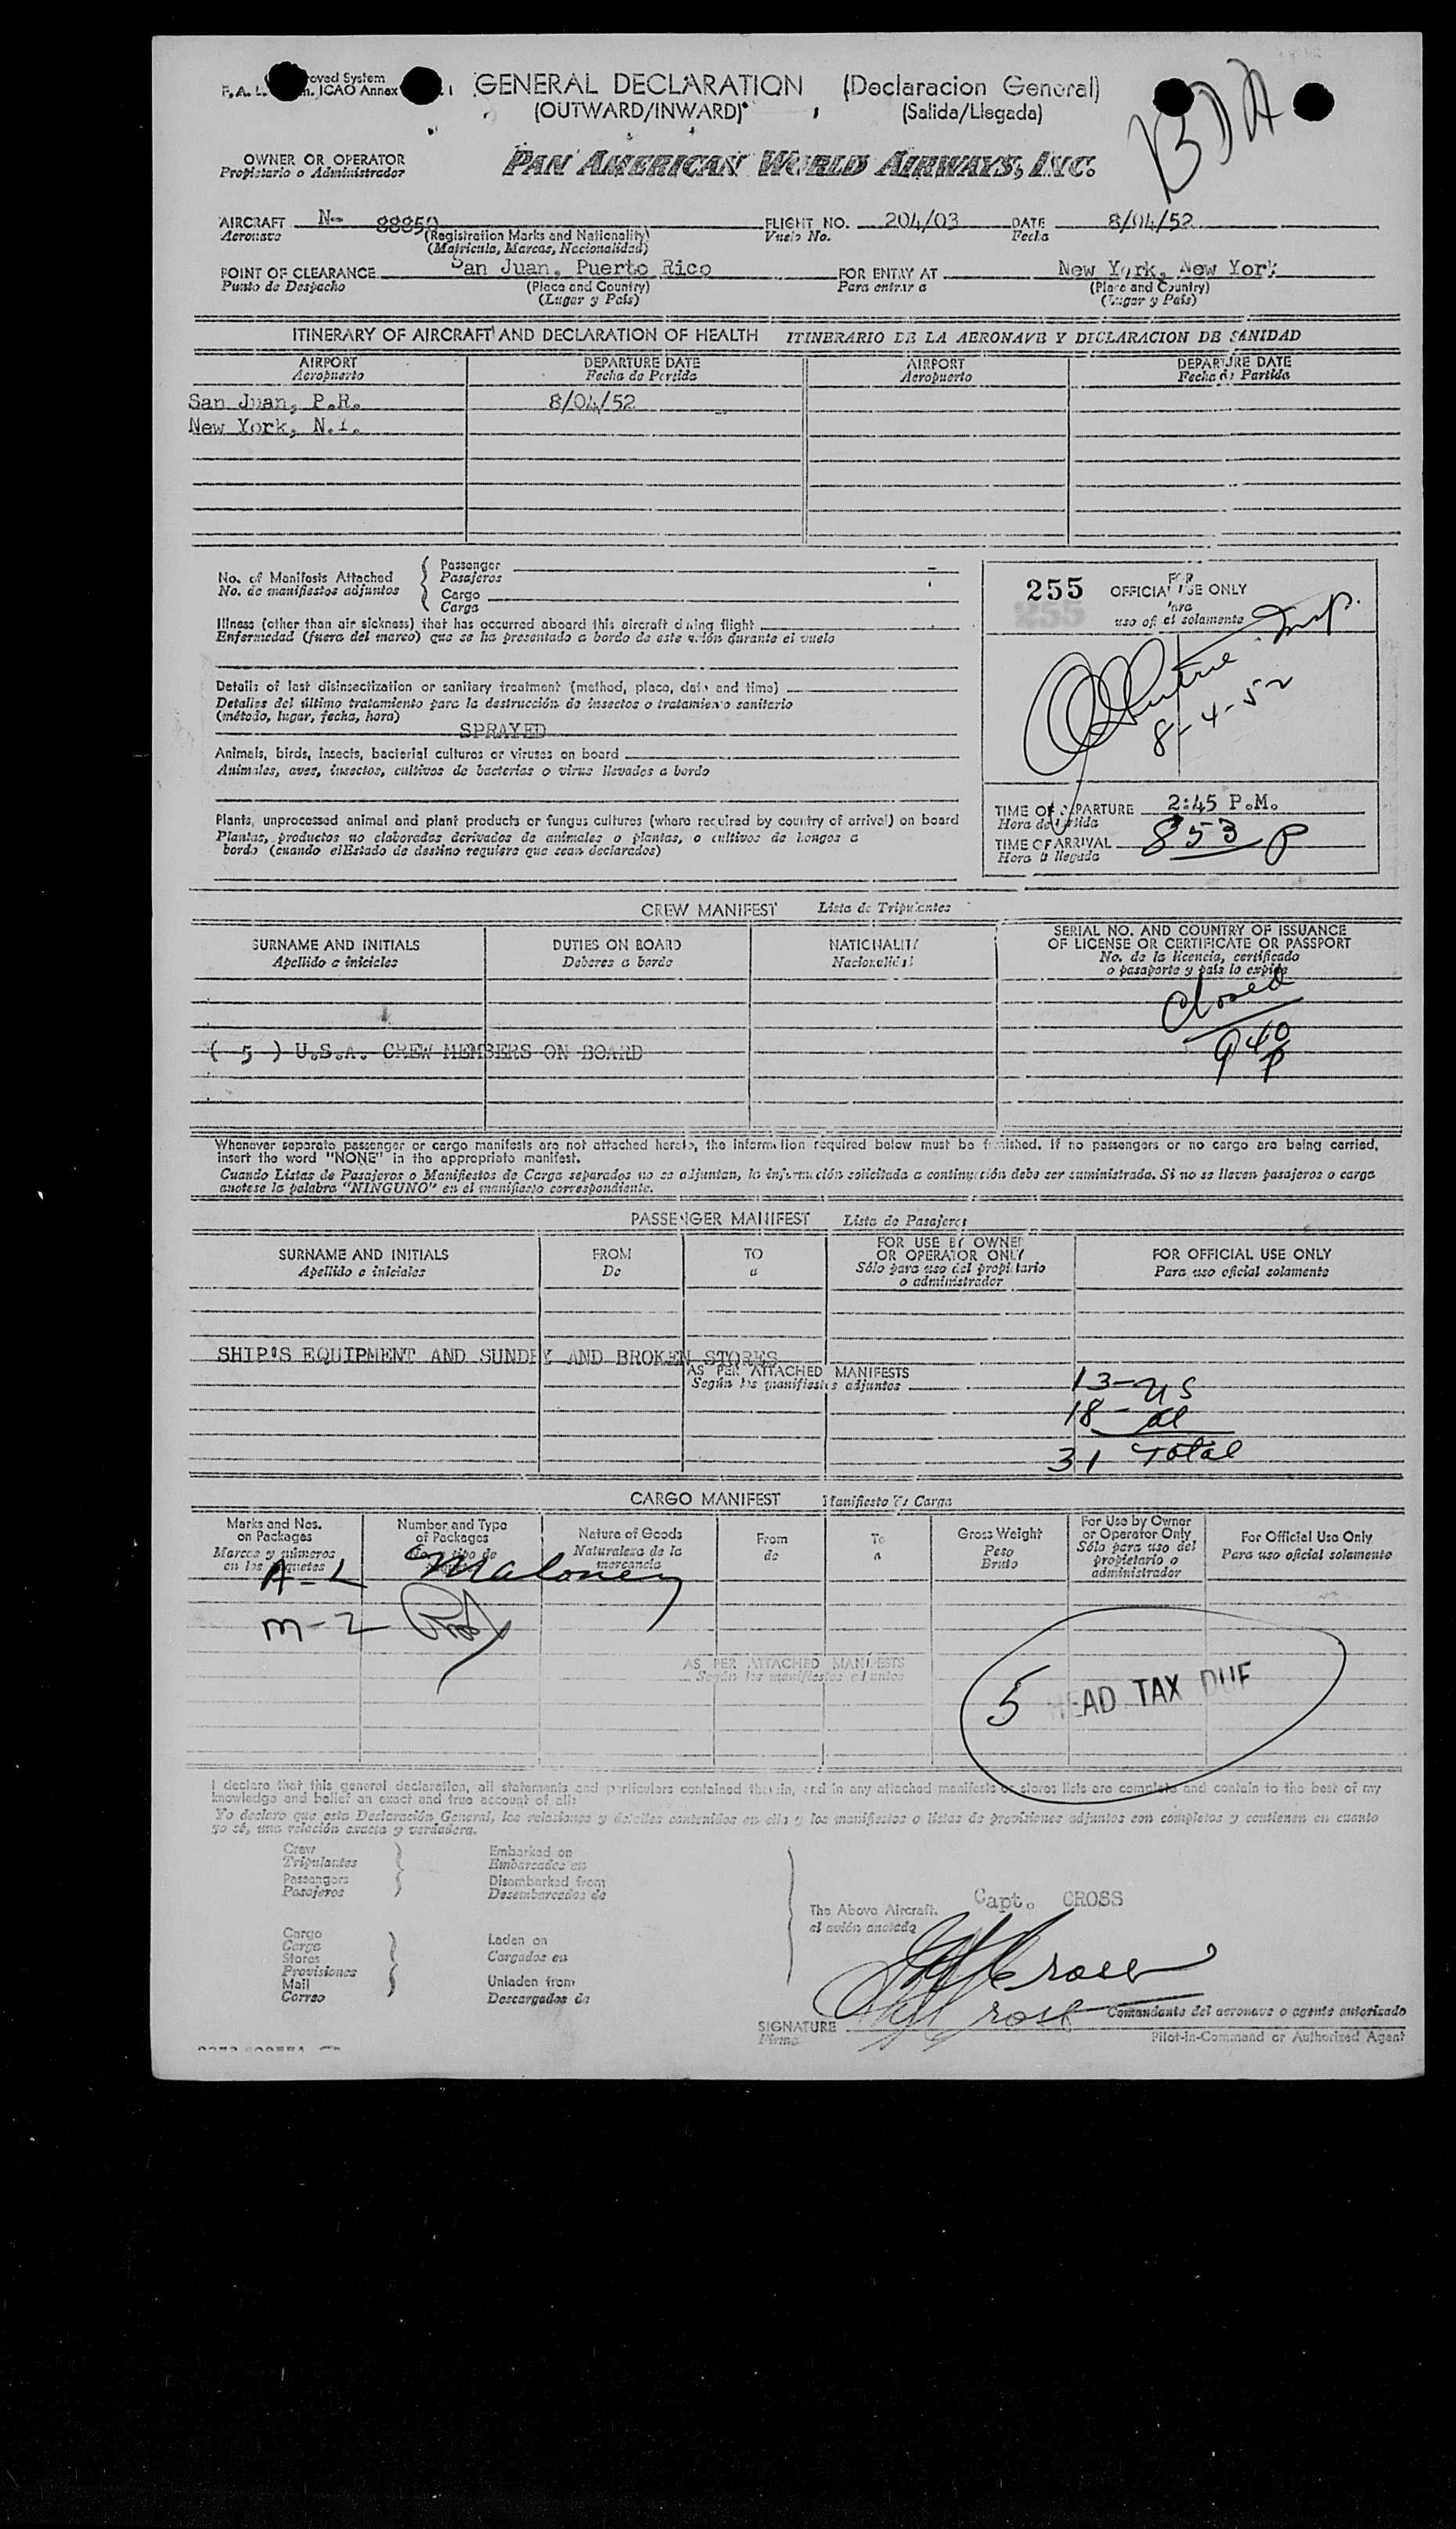 GENERAL DECLARATION (Declaracion General)
(OUTWARD/INWARD) (Salida/Llegada)
roved System
F. A. L. ICAO Annex
BDA
OWNER OR OPERATOR
Propietario o Administrador
PAN AMERICAN WORLD AIRWAYS, INC.
AIRCRAFT N- 88850 FLIGHT NO. 204/03 DATE 8/04/52
Aeronave (Registration Marks and Nationality) Vuelo No. Fecha
(Matricula, Marcas, Nacionalidad)
POINT OF CLEARANCE San Juan, Puerto Rico FOR ENTRY AT New York, New York
Punto de Despacho (Place and Country) Para entrar a (Place and Country)
(Lugar y País) (Lugar y País)
ITINERARY OF AIRCRAFT AND DECLARATION OF HEALTH ITINERARIO DE LA AERONAVE Y DICLARACION DE SANIDAD
AIRPORT DEPARTURE DATE AIRPORT DEPARTURE DATE
Aeropuerto Fecha de Partida Aeropuerto Fecha de Partida
San Juan, P.R. 8/04/52
New York, N.Y.
No. of Manifests Attached
No. de manifiestos adjuntos
Passenger
Pasajeros
Cargo
Carga
Illness (other than air sickness) that has occurred aboard this aircraft during flight
Enfermedad (fuera del mareo) que se ha presentado a bordo de este avión durante el vuelo
Details of last disinsectization or sanitary treatment (method, place, date and time)
Detalles del último tratamiento para la destrucción de insectos o tratamiento sanitario
(método, lugar, fecha, hora)
SPRAYED
Animals, birds, insects, bacterial cultures or viruses on board
Animales, aves, insectos, cultivos de bacterias o virus llevados a bordo
Plants, unprocessed animal and plant products or fungus cultures (where required by country of arrival) on board
Plantas, productos no elaborados derivados de animales o plantas, o cultivos de hongos a
bordo (cuando elEstado de destino requiera que sean declarados)
255
FOR
OFFICIAL USE ONLY
Para
uso oficial solamente
8-4-52
TIME OF DEPARTURE 2:45 P.M.
Hora de Partida
TIME OF ARRIVAL 853 P
Hora de llegada
CREW MANIFEST Lista de Tripulantes
SURNAME AND INITIALS DUTIES ON BOARD NATIONALITY SERIAL NO. AND COUNTRY OF ISSUANCE
OF LICENSE OR CERTIFICATE OR PASSPORT
Apellido e iniciales Deberes a bordo Nacionalidad No. de la licencia, certificado
o pasaporte y país lo expide
Closed
940
P
( 5 ) U.S.A. CREW MEMBERS ON BOARD
Whenever separate passenger or cargo manifests are not attached hereto, the information required below must be furnished. If no passengers or no cargo are being carried,
insert the word "NONE" in the appropriate manifest.
Cuando Listas de Pasajeros o Manifiestos de Carga separados no se adjuntan, la información solicitada a continuación debe ser suministrada. Si no se lleven pasajeros o carga
anotese la palabra "NINGUNO" en el manifiesto correspondiente.
PASSENGER MANIFEST Lista de Pasajeros
SURNAME AND INITIALS FROM TO FOR USE BY OWNER
OR OPERATOR ONLY FOR OFFICIAL USE ONLY
Apellido e iniciales De a Sólo para uso del propietario
o administrador Para uso oficial solamente
SHIP'S EQUIPMENT AND SUNDRY AND BROKEN STORES
AS PER ATTACHED MANIFESTS
Según los manifiestos adjuntos
13-US
18-al
31 Total
CARGO MANIFEST Manifiesto de Carga
Marks and Nos.
on Packages
Marcas y números
en los paquetes
Number and Type
of Packages
No. y tipo de
Nature of Goods
Naturaleza de la
mercancía
From
de
To
a
Gross Weight
Peso
Bruto
For Use by Owner
or Operator Only
Sólo para uso del
propietario o
administrador
For Official Use Only
Para uso oficial solamente
A-L Maloney
M-Z
AS PER ATTACHED MANIFESTS
Según los manifiestos adjuntos
5 HEAD TAX DUE
I declare that this general declaration, all statements and particulars contained therein, and in any attached manifests or stores lists are complete and contain to the best of my
knowledge and belief an exact and true account of all:
Yo declaro que esta Declaración General, las relaciones y detalles contenidos en ella y los manifiestos o listas de provisiones adjuntos son completos y contienen en cuanto
yo sé, una relación exacta y verdadera.
Crew
Tripulantes
Passengers
Pasajeros
Embarked on
Embarcados en
Disembarked from
Desembarcados de
Cargo
Carga
Stores
Provisiones
Mail
Correo
Laden on
Cargados en
Unladen from
Descargados de
The Above Aircraft.
el avión anotado
Capt. CROSS
Cross
Cross
Comandante del aeronave o agente autorizado
SIGNATURE
Firma
Pilot-in-Command or Authorized Agent